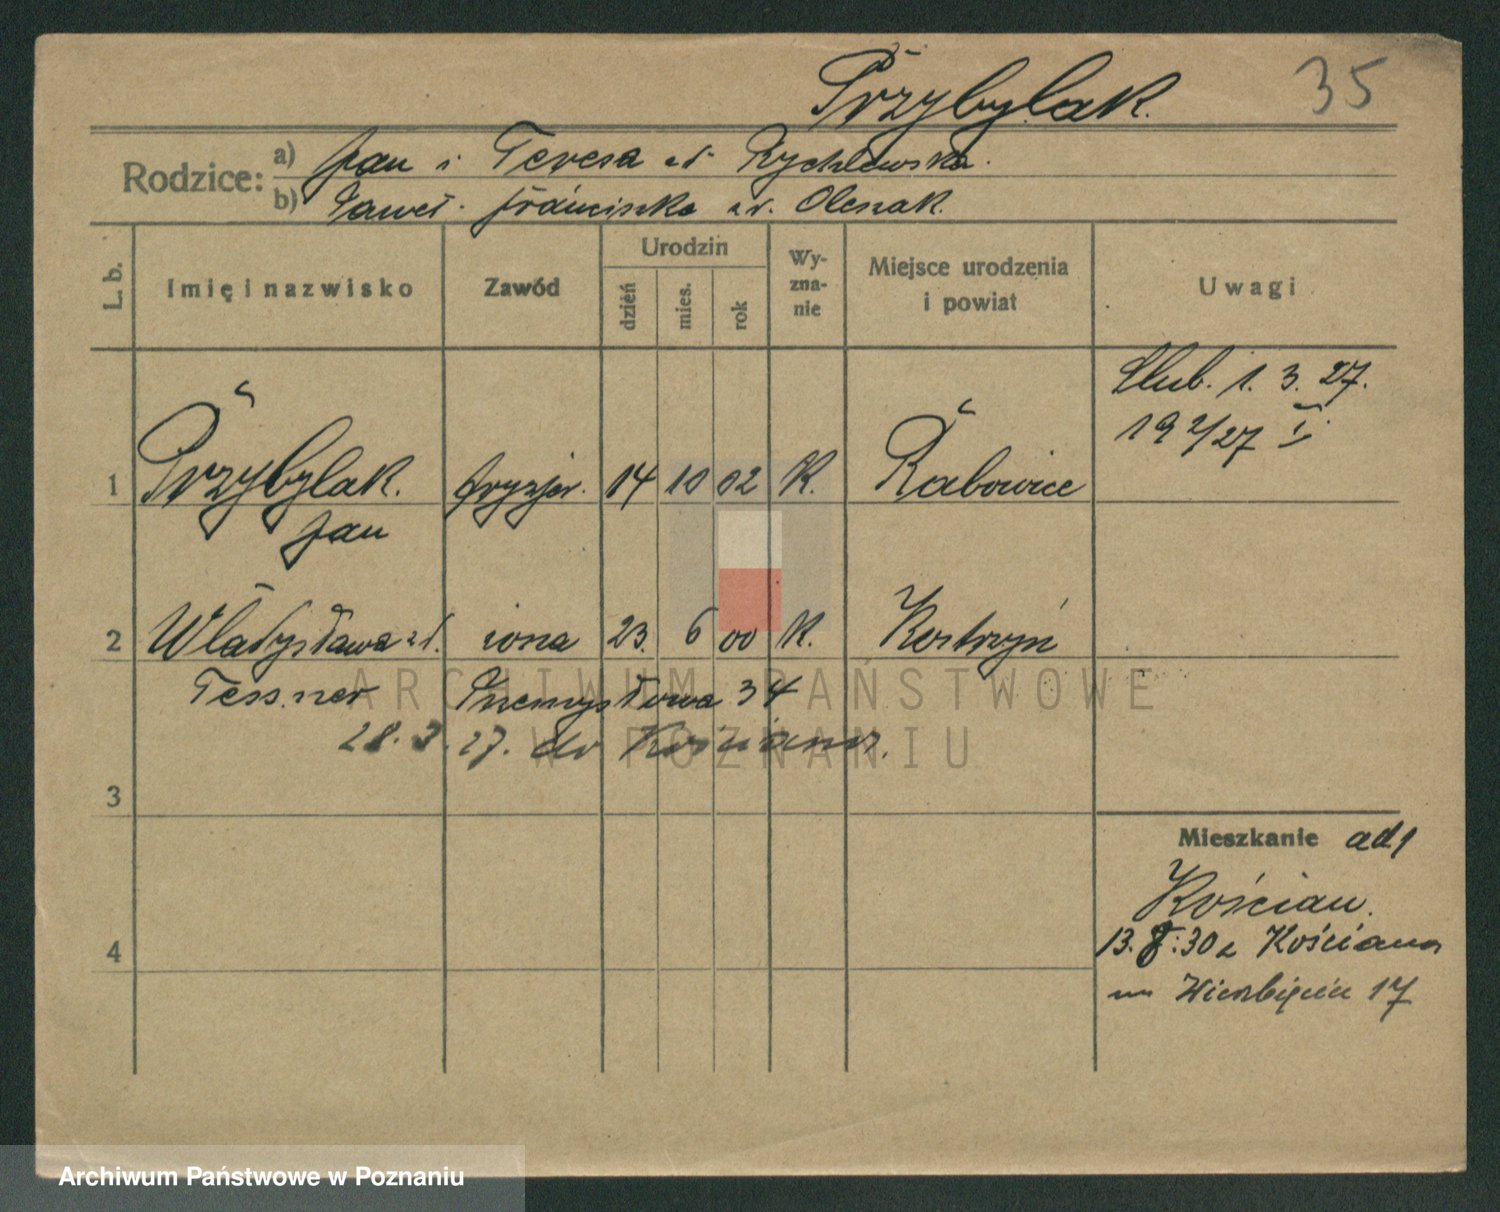 Przybylak. 35
Rodzice: a) Jan i Teresa zd Rychlewska.
b) Paweł. Franciszka zd. Olszak.
L. b. Imię i nazwisko Zawód Urodzin dzień mies. rok Wyznanie Miejsce urodzenia i powiat Uwagi
Ślub. 1. 3. 27.
192/27 I
1 Przybylak. fryzjer. 14 10 02 K. Rabowice
Jan
2 Władysława zd. żona 23. 6 00 K. Kostrzyń
Tessner Przemysłowa 34
28. 3. 27. do Kościana.
3
Mieszkanie ad 1
Kościan.
13. 8. 30 z Kościana
4
na Wierzbięcice 17
ARCHIWUM PAŃSTWOWE
W POZNANIU
Archiwum Państwowe w Poznaniu